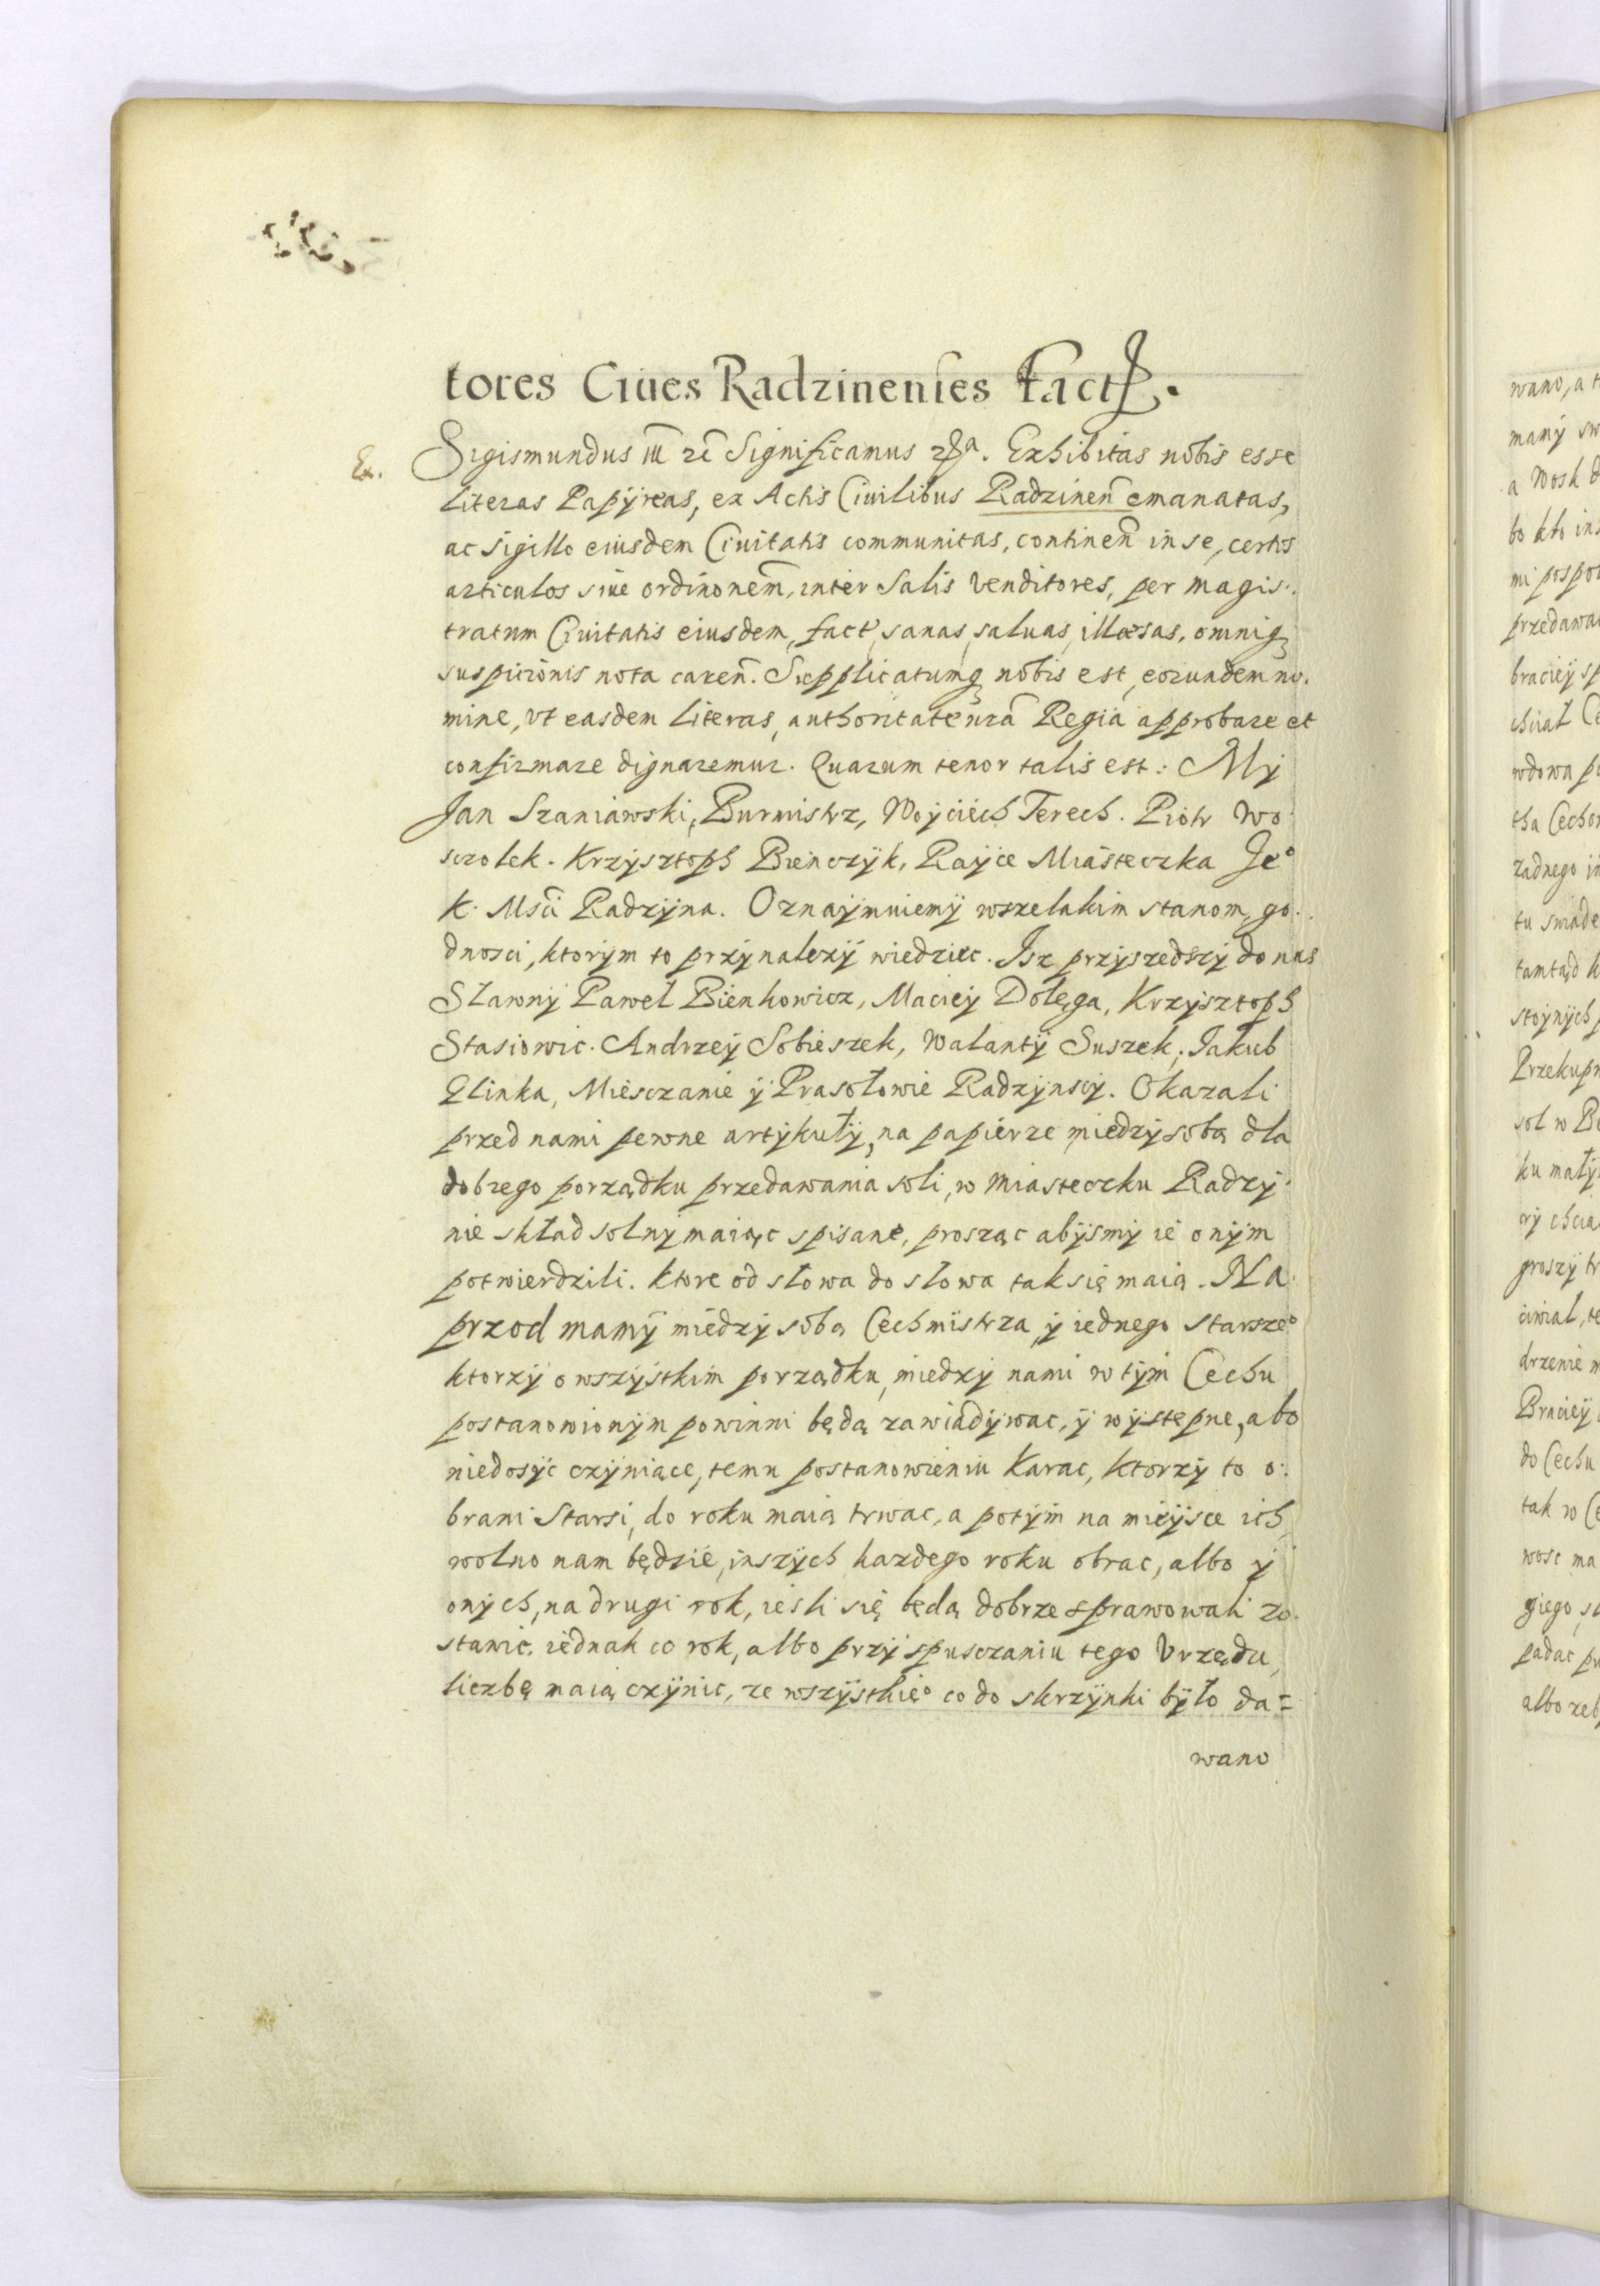 tores Ciues Radzinenses fact.
Ex.
Sigismundus III rc̃ Significamus. Exhibitas nobis esse
literas Papÿreas, ex Actis Ciuilibus Radzineñ emanatas,
ac sigillo eiusdem Ciuitatis communitas, contineñ in se, certos
articulos siue ordinonem, inter Salis Venditores, per magis.
tratum Ciuitatis eiusdem, fact, sanas, saluas, illœsas, omniq
suspicionis nota careñ. Supplicatumq nobis est, eorundem no.
mine, vt easdem literas, authoritate nrã Regia approbare et
confirmare dignaremur. Quarum tenor talis est: Mÿ
Jan Szaniawski, Burmistrz, Woÿciech Terech. Piotr Wo
sczolek. Krzÿsztoph Bienczÿk, Raÿce Miasteczka Jeº
K. Msci Radzÿna. Oznaÿmuiemÿ wszelakim stanom, go.
dnosci, ktorÿm to przÿnalezÿ wiedziec. Isz przÿszedszÿ do nas
Sławnÿ Paweł Bienkowicz, Macieÿ Dołęga, Krzÿsztoph
Stasiowic. Andrzeÿ Sobieszek, Walantÿ Suszek, Jakub
Glinka, Miesczanie ÿ Prasołowie Radzÿnscÿ. Okazali
przed nami pewne artÿkułÿ, na papierze miedzÿ sobą dla
dobrego porządku przedawania soli, w miasteczku Radzÿ
nie skład solnÿ maiąc spisane, prosząc abÿsmÿ ie onÿm
potwierdzili. ktore od słowa do słowa tak się maią. Na
przod mamÿ miedzÿ sobą Cechmistrza, ÿ iednego starszeº
ktorzÿ o wszÿstkim porządku, miedzÿ nami w tÿm Cechu
postanowionÿm powinni będą zawiadÿwac, ÿ wÿstępne, abo
niedosÿc czÿniące, temu postanowieniu karac, ktorzÿ to o.
brani Starsi, do roku maią trwac, a potÿm na mieÿsce ich
wolno nam będzie, inszÿch kazdego roku obrac, albo ÿ
onÿch, na drugi rok, iesli się będą dobrze sprawowali zo.
stawic. iednak co rok, albo przÿ spusczaniu tego Vrzędu,
liczbę maią czÿnic, ze wszÿstkieº co do skrzÿnki bÿło da=
wano